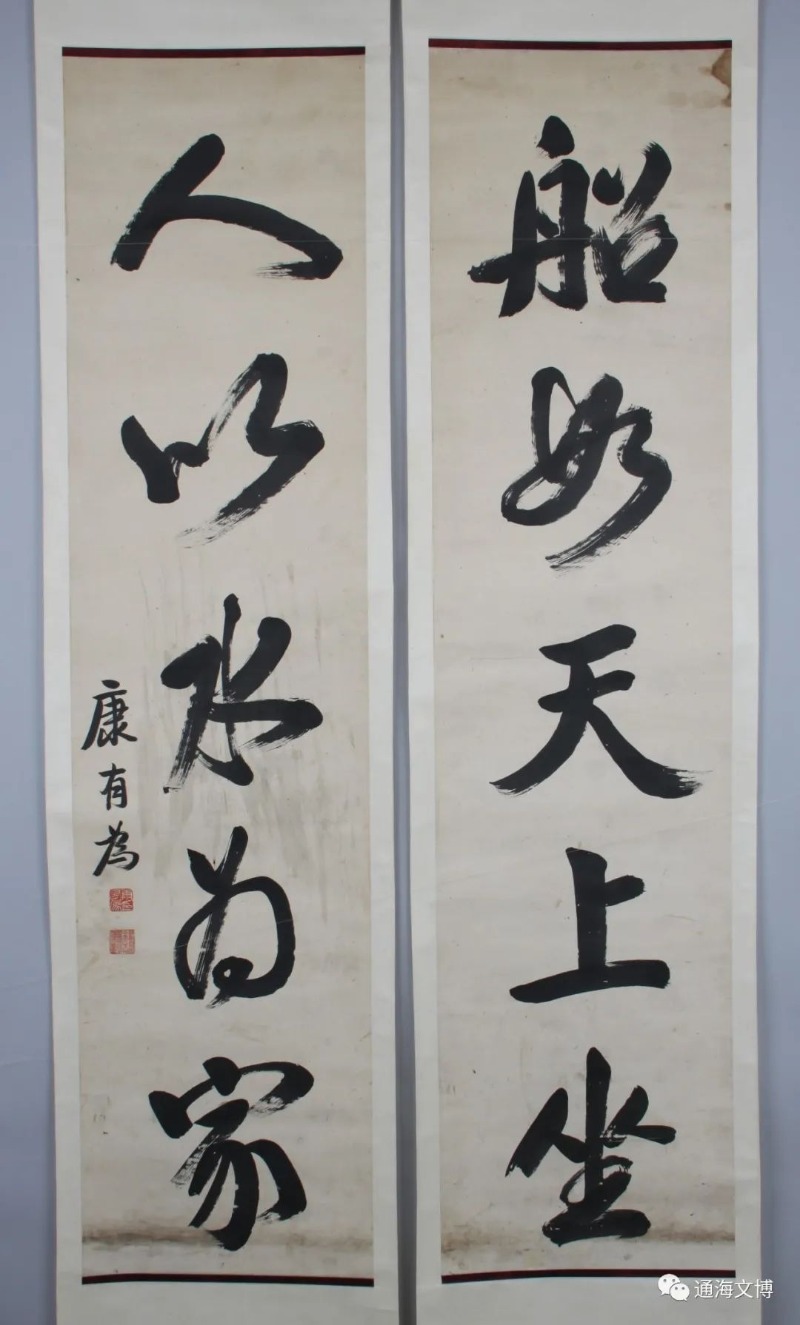 船如天上坐
人以水为家
康有為
通海文博